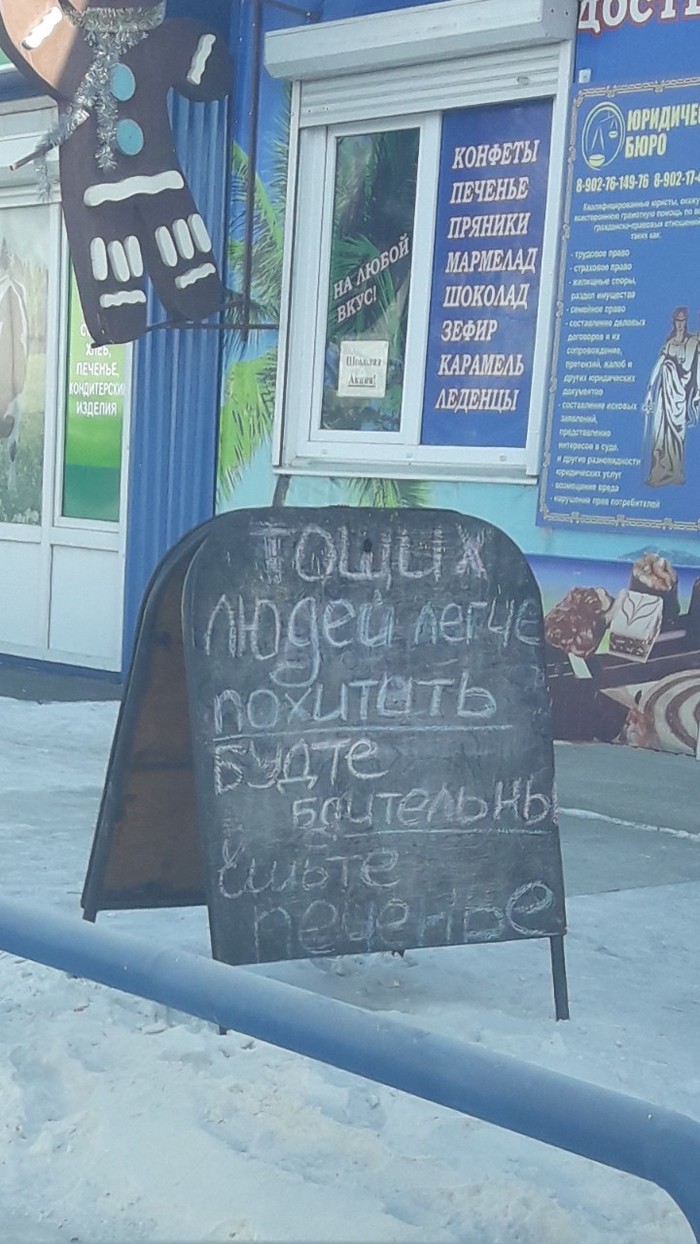 ДОСТ
ЮРИДИЧЕС
БЮРО
8-902-76-149-76 8-902-17-
Квалифицированные юристы, окажу
всестороннюю грамотную помощь по во
гражданско-правовых отношени
таких как:
- трудовое право
- страховое право
- жилищные споры,
раздел имущества
- семейное право
- составление деловых
договоров и их
сопровождение,
претензий, жалоб и
других юридических
документов
- составление исковых
заявлений,
представление
интересов в суде,
и другие разновидности
юридических услуг
- возмещение вреда
- нарушение прав потребителей
КОНФЕТЫ
ПЕЧЕНЬЕ
ПРЯНИКИ
МАРМЕЛАД
ШОКОЛАД
ЗЕФИР
КАРАМЕЛЬ
ЛЕДЕНЦЫ
НА ЛЮБОЙ
ВКУС!
Акция!
ХЛЕБ,
ПЕЧЕНЬЕ,
КОНДИТЕРСКИ
ИЗДЕЛИЯ
ТОЩЫХ
ЛЮДЕЙ ЛЕГЧЕ
ПОХИТИТЬ
БУДТЕ
БДИТЕЛЬНЫ
ЕШЬТЕ
ПЕЧЕНЬЕ